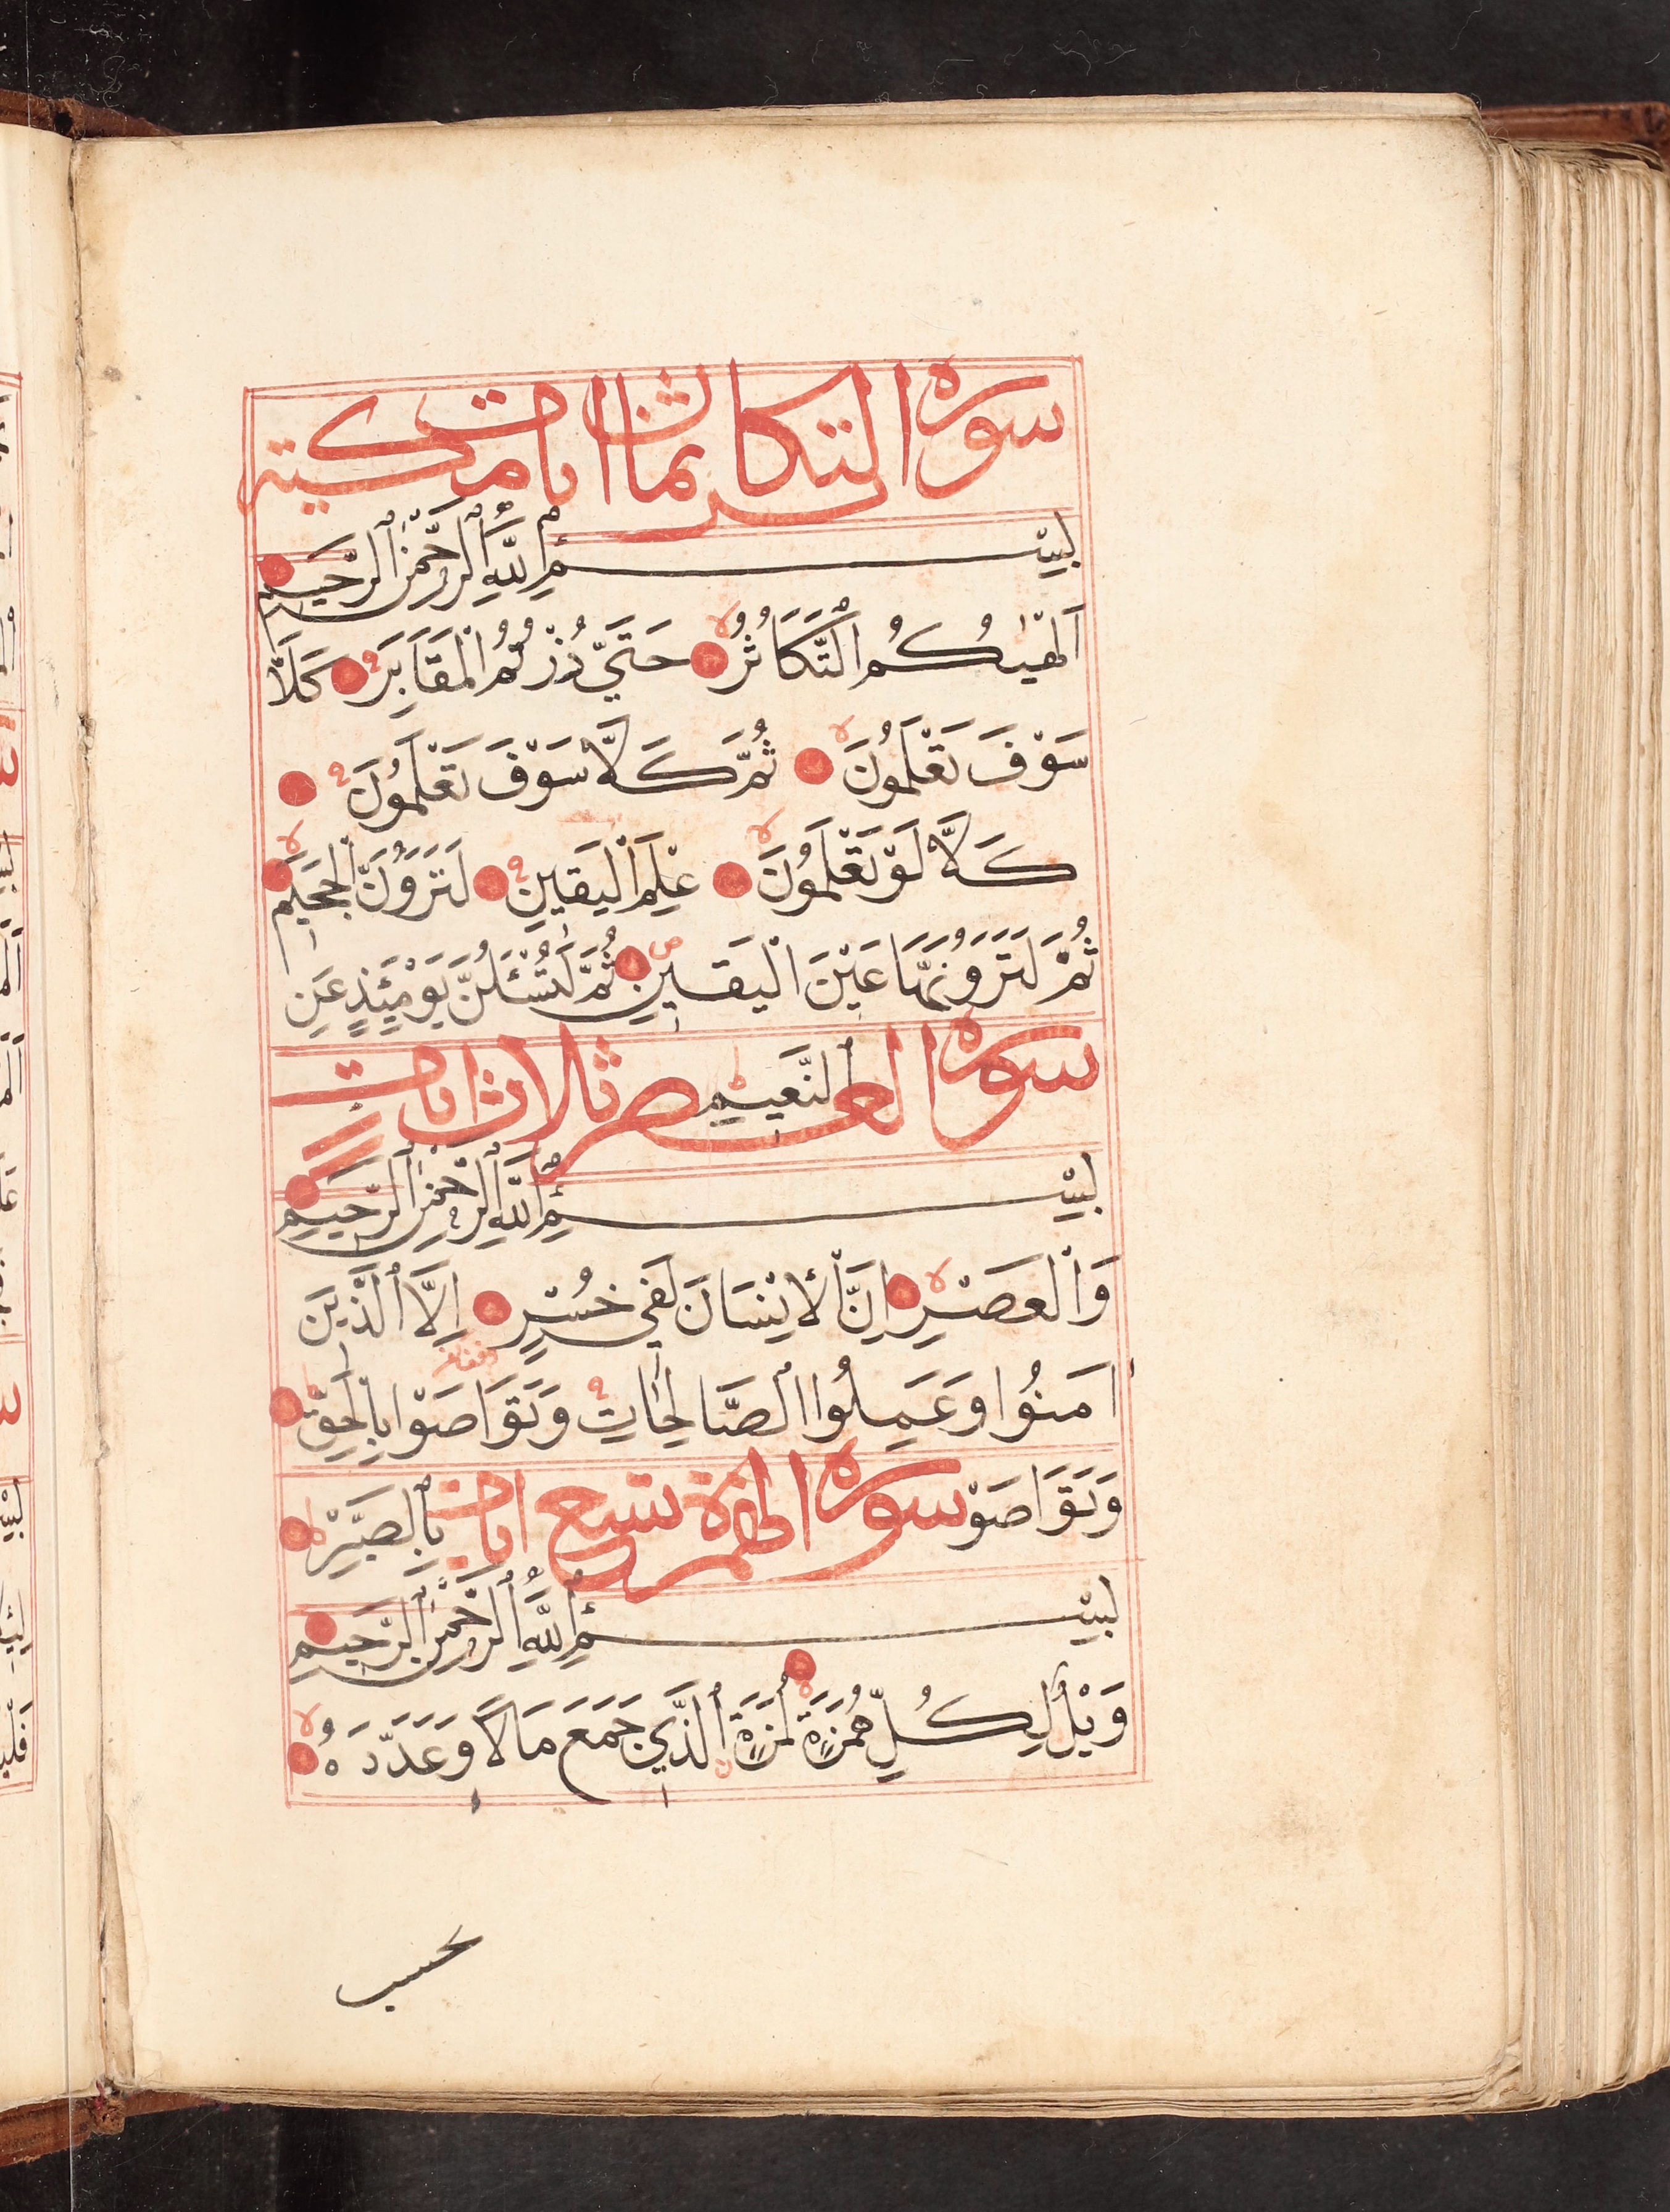 سورة التكاثر ثمان ايات مكية
بِسْمِ اللَّهِ الرَّحْمٰنِ الرَّحِيمِ
اَلْهٰيكُمُ التَّكَاثُرُ لا حَتَّىٰ زُرْتُمُ الْمَقَابِرَ كَلَّا
سَوْفَ تَعْلَمُونَ لا ثُمَّ كَلَّا سَوْفَ تَعْلَمُونَ
كَلَّا لَوْ تَعْلَمُونَ لا عِلْمَ الْيَقِينِ لَتَرَوُنَّ الْجَحِيمَ لا
ثُمَّ لَتَرَوُنَّهَا عَيْنَ الْيَقِينِ ص ثُمَّ لَتُسْئَلُنَّ يَوْمَئِذٍ عَنِ
النَّعِيمِ
سورة العصر ثلاث ايات
بِسْمِ اللَّهِ الرَّحْمٰنِ الرَّحِيمِ
وَالْعَصْرِ لا اِنَّ الْاِنْسَانَ لَفِي خُسْرٍ اِلَّا الَّذِينَ
اٰمَنُوا وَعَمِلُوا الصَّالِحَاتِ وَتَوَاصَوْا بِالْحَقِّ
وَتَوَاصَوْ بِالصَّبْرِ
سورة الهمزة تسع ايات
بِسْمِ اللَّهِ الرَّحْمٰنِ الرَّحِيمِ
وَيْلٌ لِكُلِّ هُمَزَةٍ لُمَزَةٍ الَّذِي جَمَعَ مَالًا وَعَدَّدَهُ لا
يحسب